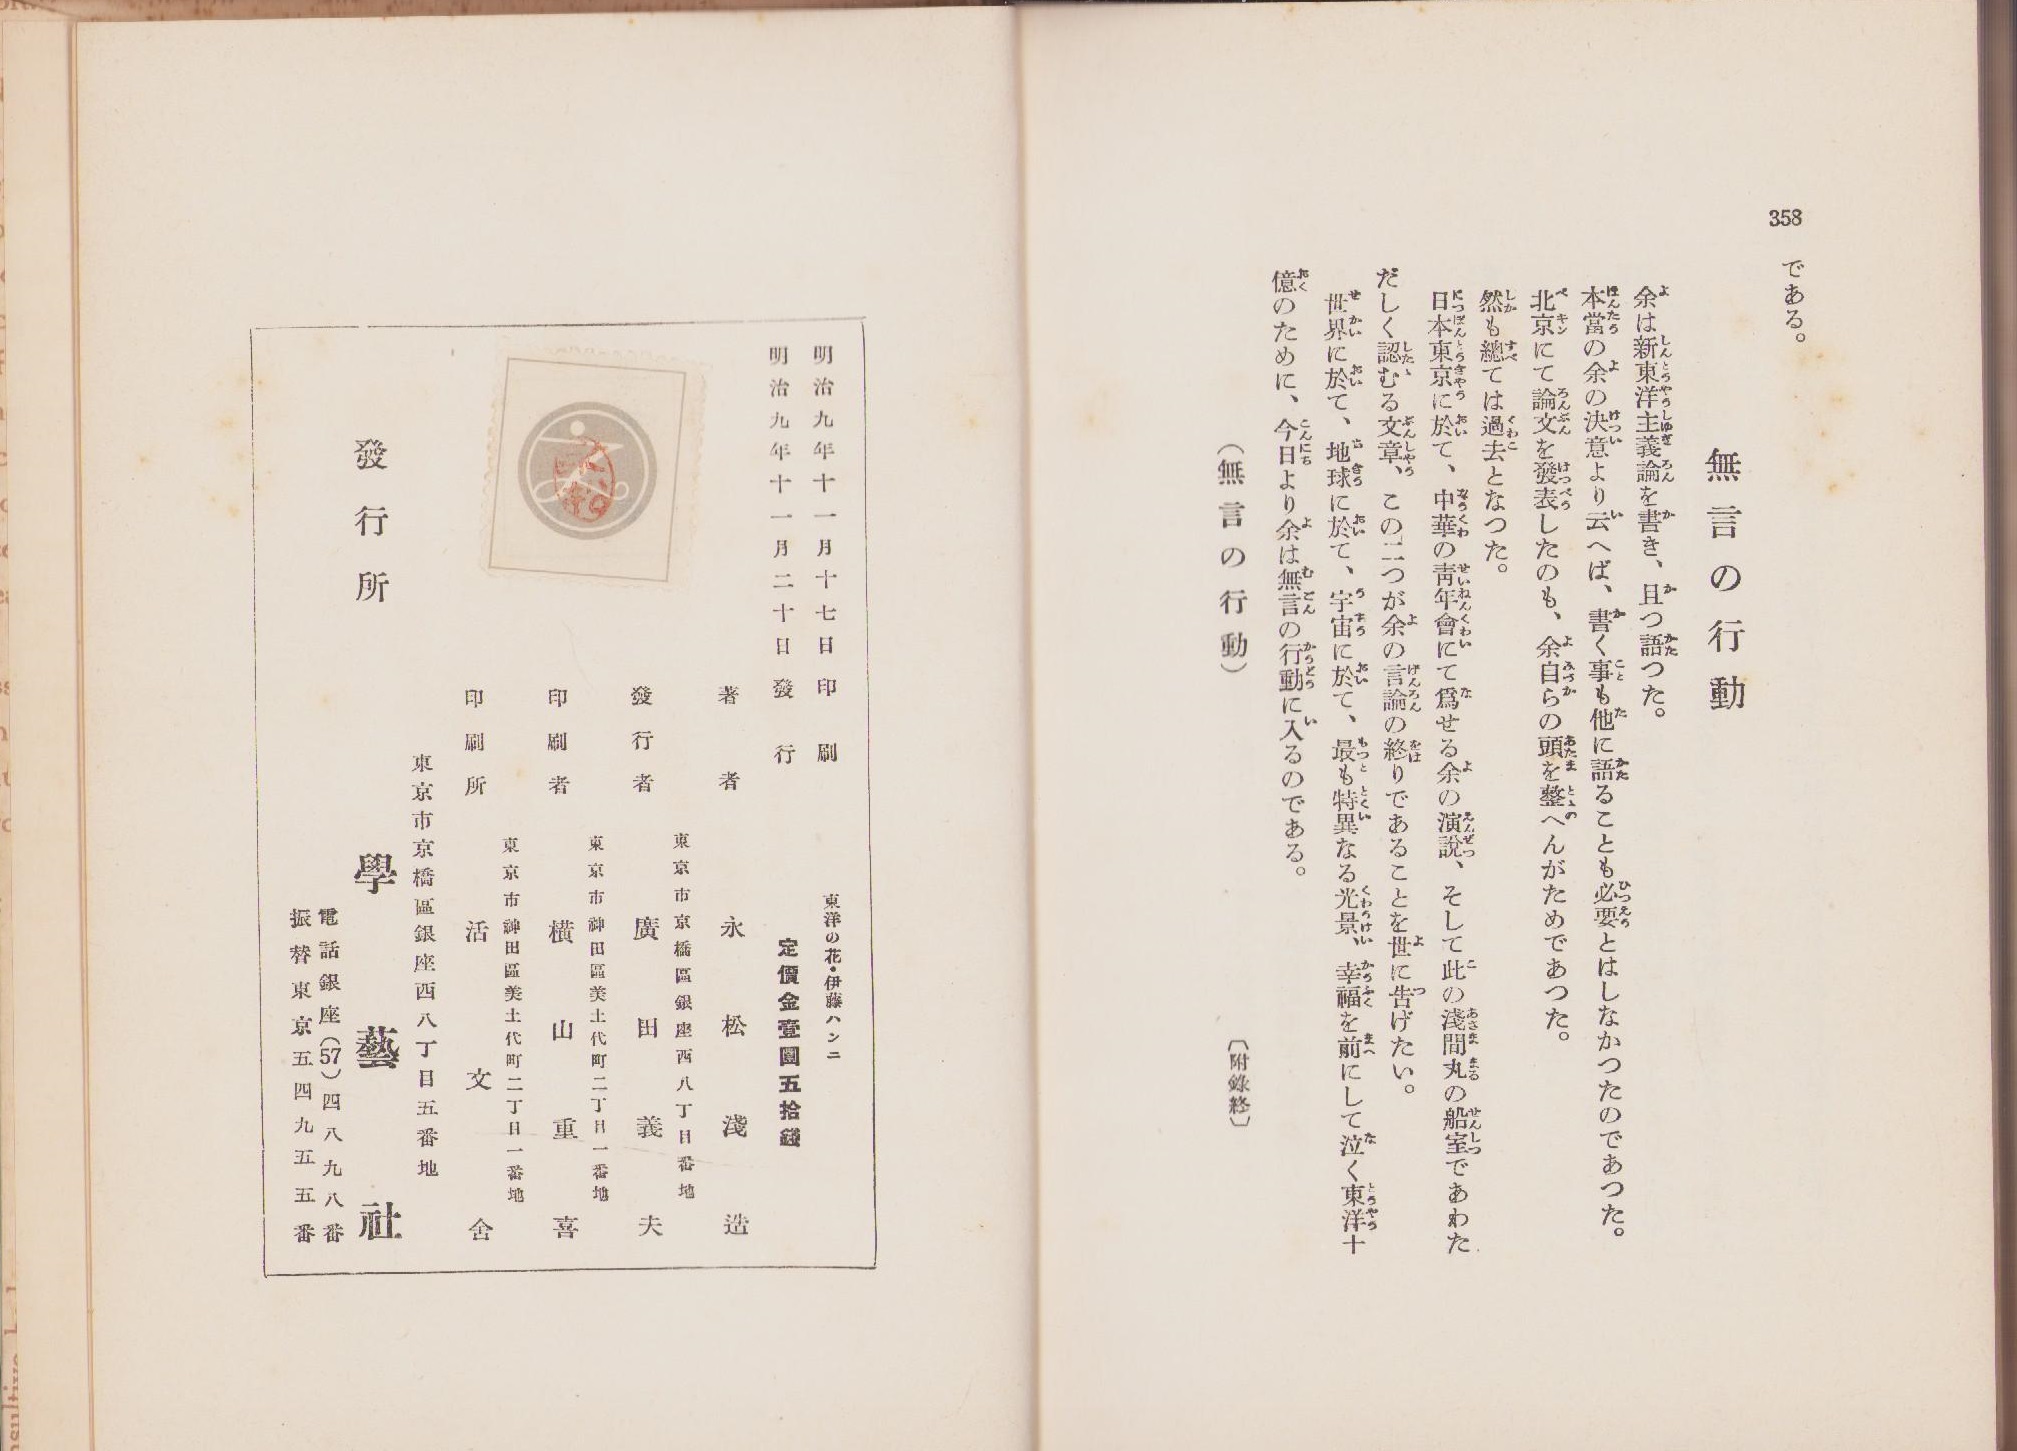 358
である。
無言の行動
余は新東洋主義論を書き、且つ語つた。
本當の余の決意より云へば、書く事も他に語ることも必要とはしなかつたのであつた。
北京にて論文を發表したのも、余自らの頭を整へんがためであつた。
然も總ては過去となつた。
日本東京に於て、中華の靑年會にて爲せる余の演說、そして此の淺間丸の船室であわた
だしく認むる文章、この二つが余の言論の終りであることを世に吿げたい。
世界に於て、地球に於て、宇宙に於て、最も特異なる光景、幸福を前にして泣く東洋十
億のために、今日より余は無言の行動に入るのである。
(無言の行動)
〔附錄終〕
明治九年十一月十七日印刷
明治九年十一月二十日發行
東洋の花・伊藤ハンニ
定價金壹圓五拾錢
著者 永松淺造
東京市京橋區銀座西八丁目五番地
發行者 廣田義夫
東京市神田區美土代町二丁目一番地
印刷者 橫山重喜
東京市神田區美土代町二丁目一番地
印刷所 活文舍
東京市京橋區銀座西八丁目五番地
發行所 學藝社
電話銀座(57)四八九八番
振替東京五四九五五番